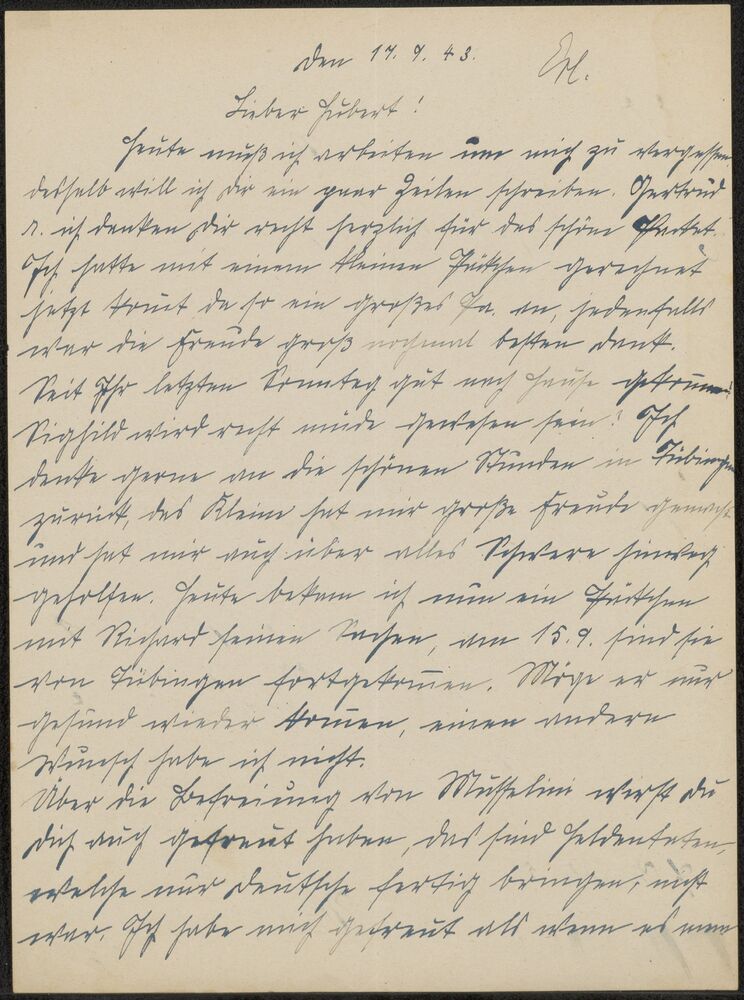 Den 17. 9. 43.
Erl.
Lieber Hubert!
Heute muß ich arbeiten um mich zu vergessen
deshalb will ich Dir ein paar Zeilen schreiben. Gertrud
u. ich danken Dir recht herzlich für das schöne Packet.
Ich hatte mit einem kleinen Päckchen gerechnet
jetzt kommt da so ein großes Pa. an, jedenfalls
war die Freude groß nochmal besten Dank.
Seit Ihr letzten Sonntag gut nach Hause gekommen?
Sighild wird recht müde gewesen sein? Ich
denke gerne an die schönen Stunden in Tübingen
zurück, das Kleine hat mir große Freude gemacht
und hat mir auch über alles Schwere hinweg
geholfen. Heute bekam ich nun ein Päckchen
mit Richard seinen Sachen, am 15. 9. sind sie
von Tübingen fortgekommen. Möge er nur
gesund wieder kommen, einen andern
Wunsch habe ich nicht.
Über die Befreiung von Musselini wirst Du
Dich auch gefreut haben, das sind Heldentaten,
welche nur Deutsche fertig bringen, nicht
war. Ich habe mich gefreut als wenn es mein